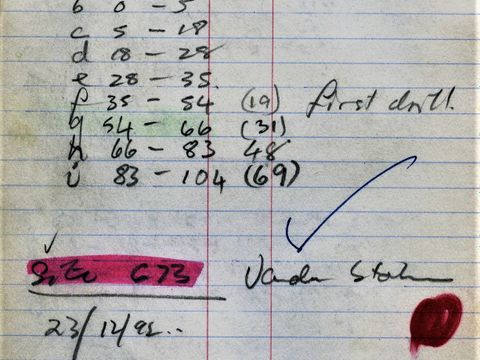 b 0 - 5
c 5 - 18
d 18 - 28
e 28 - 35
f 35 - 54 (19) first drill.
g 54 - 66 (31)
h 66 - 83 48
i 83 - 104 (69)
Site 673
23/12/